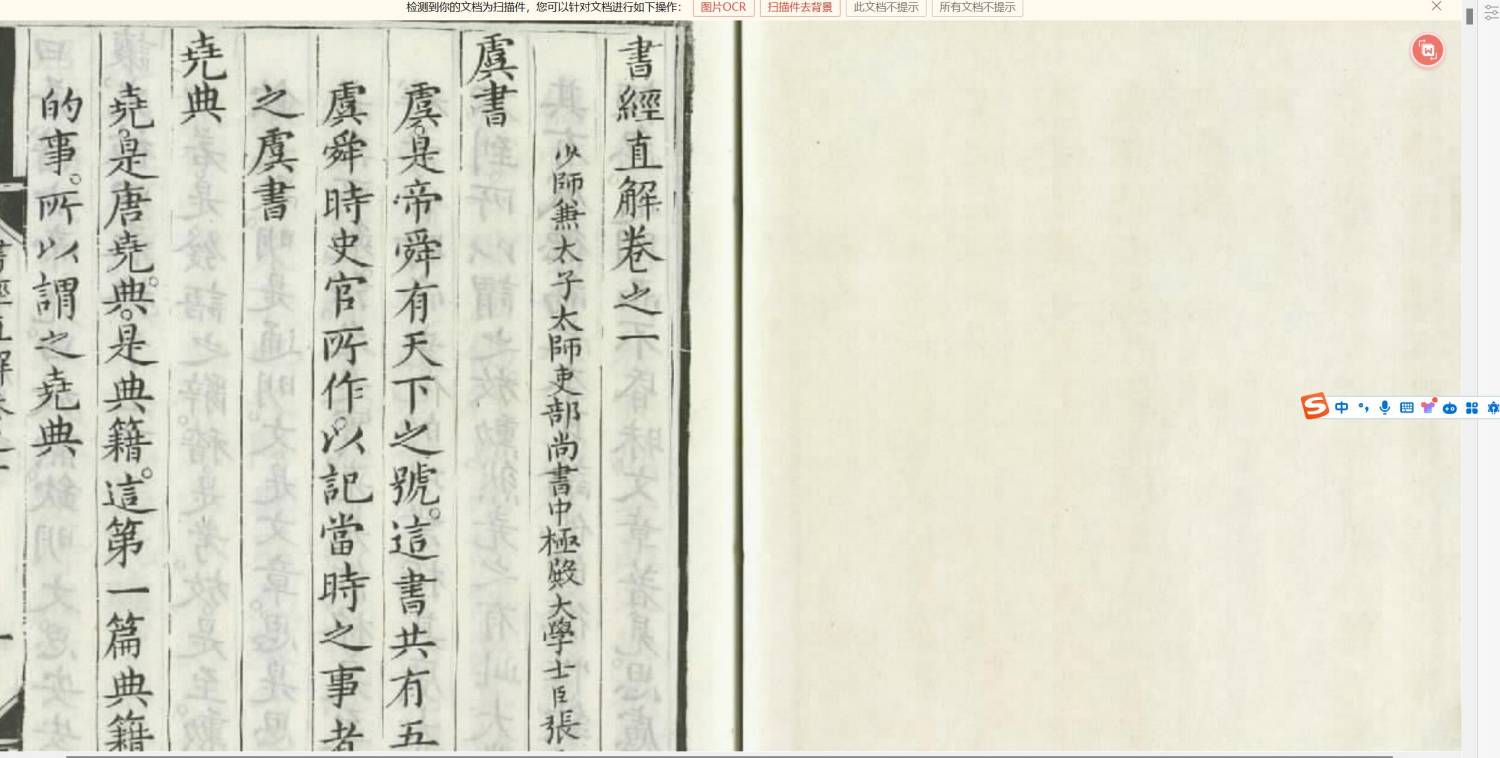 检测到你的文档为扫描件，您可以针对文档进行如下操作： 图片OCR 扫描件去背景 此文档不提示 所有文档不提示
書經直解卷之一
少師兼太子太師吏部尚書中極殿大學士臣張
虞書
虞。是帝舜有天下之號。這書共有五
虞舜時史官所作。以記當時之事者
之虞書
堯典
堯。是唐堯。典。是典籍。這第一篇典籍
的事。所以謂之堯典
書經直解卷之一
中